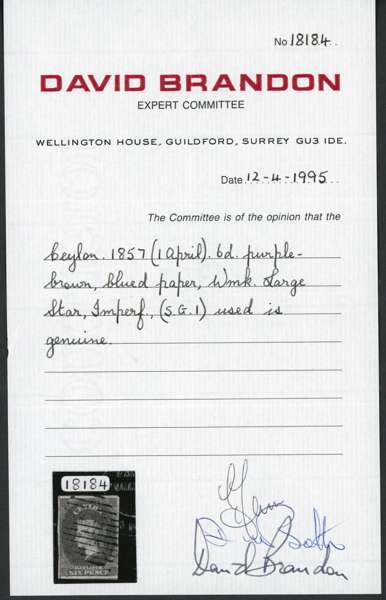 No 18184
DAVID BRANDON
EXPERT COMMITTEE
WELLINGTON HOUSE, GUILDFORD, SURREY GU3 1DE.
Date 12-4-1995
The Committee is of the opinion that the
Ceylon. 1857 (1 April). 6d. purple-
brown, blued paper, Wmk. Large
Star, Imperf., (S.G.1) used is
genuine.
18184
CEYLON
SIX PENCE
David Brandon